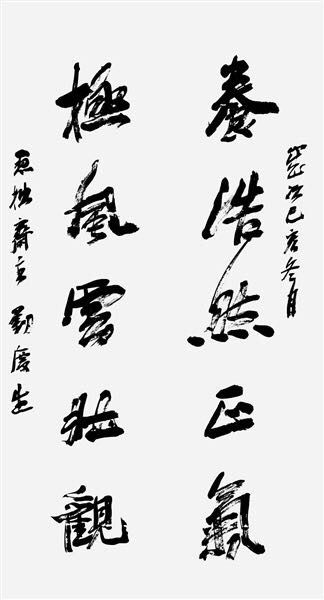 歲次己亥冬月
養浩然正氣
極風雲壯觀
拙齋主 慶生